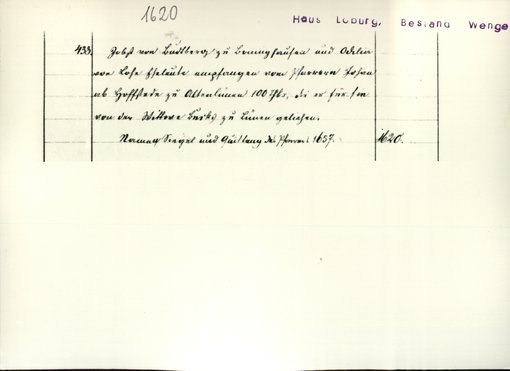 1620
Haus Loburg, Bestand Wenge
433. Jobst von Budberg zu Brunghausen und Odelia
von Lohe Eheleute empfangen vom Pfarrern Johan
ab Hoffstede zu Altenlünen 100 Thlr. die er für sie
von der Wittwe Burks zu Lünen geliehen.
Namen Siegel und Quittung des Pfarrers 1637. 1620.